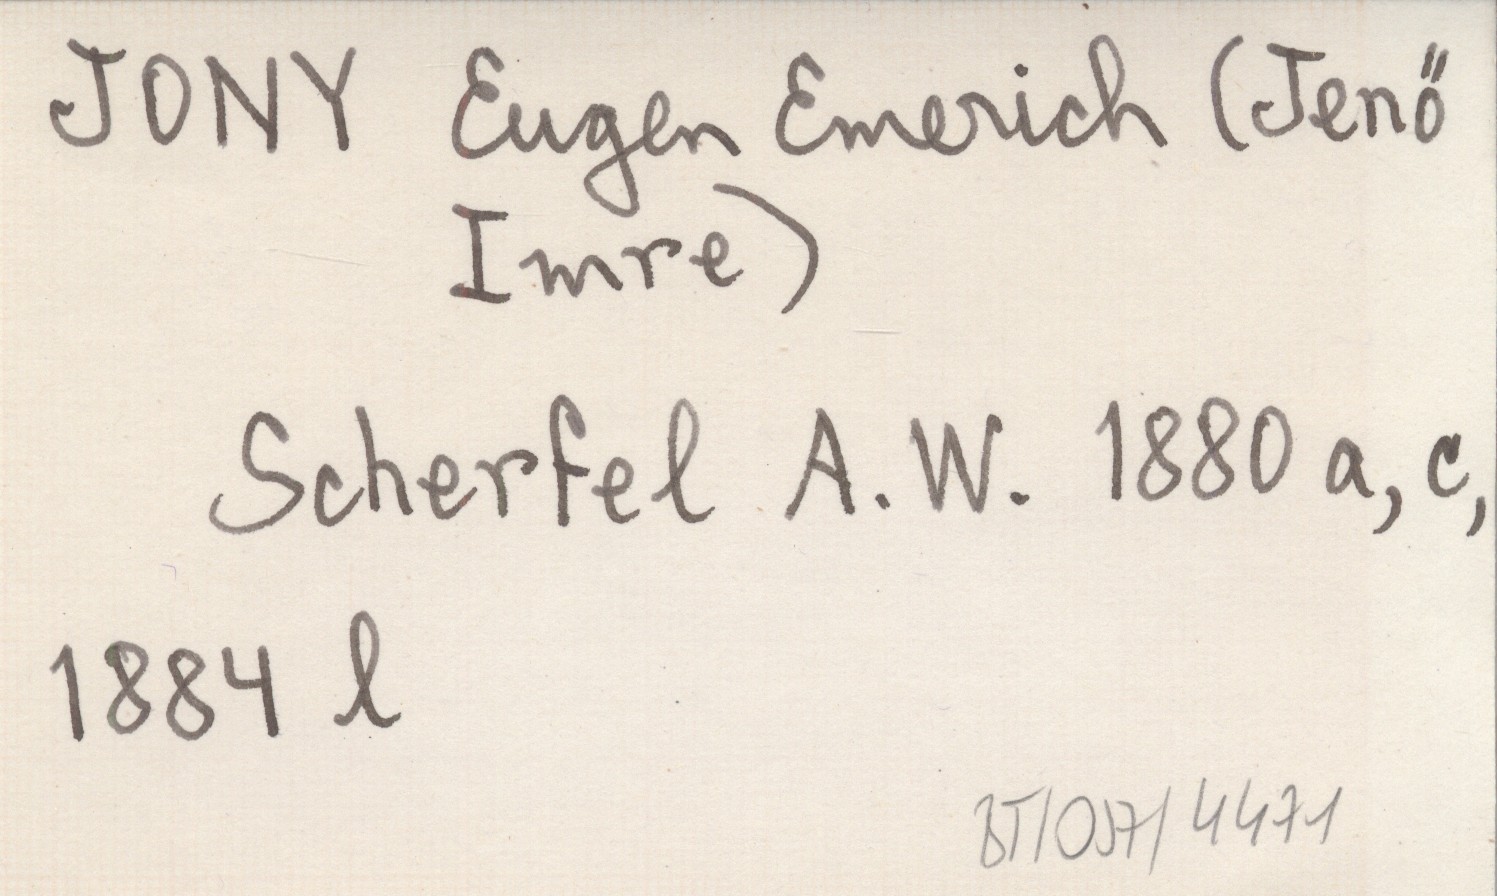 JONY Eugen Emerich (Jenő
Imre)
Scherfel A.W. 1880 a, c,
1884 l
BT/057/4471